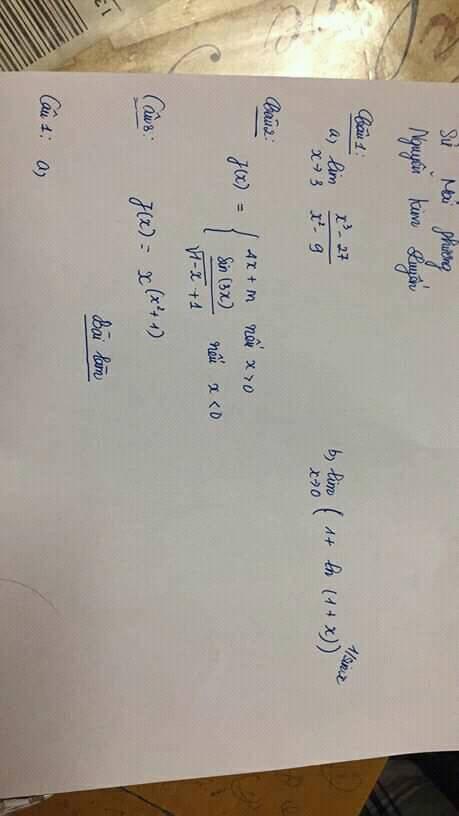 Sư Mai Phương
Nguyễn Kim Luyến
Câu 1:
a, lim x→3 (x³ - 27)/(x² - 9) b, lim x→0 (1 + ln (1 + x))^(1/sin x)
Câu 2:
f(x) = { 4x + m nếu x > 0
sin(3x)/(√(1-x) + 1) nếu x < 0
Câu 3: f(x) = x^(x²+1)
Bài làm
Câu 1: a,